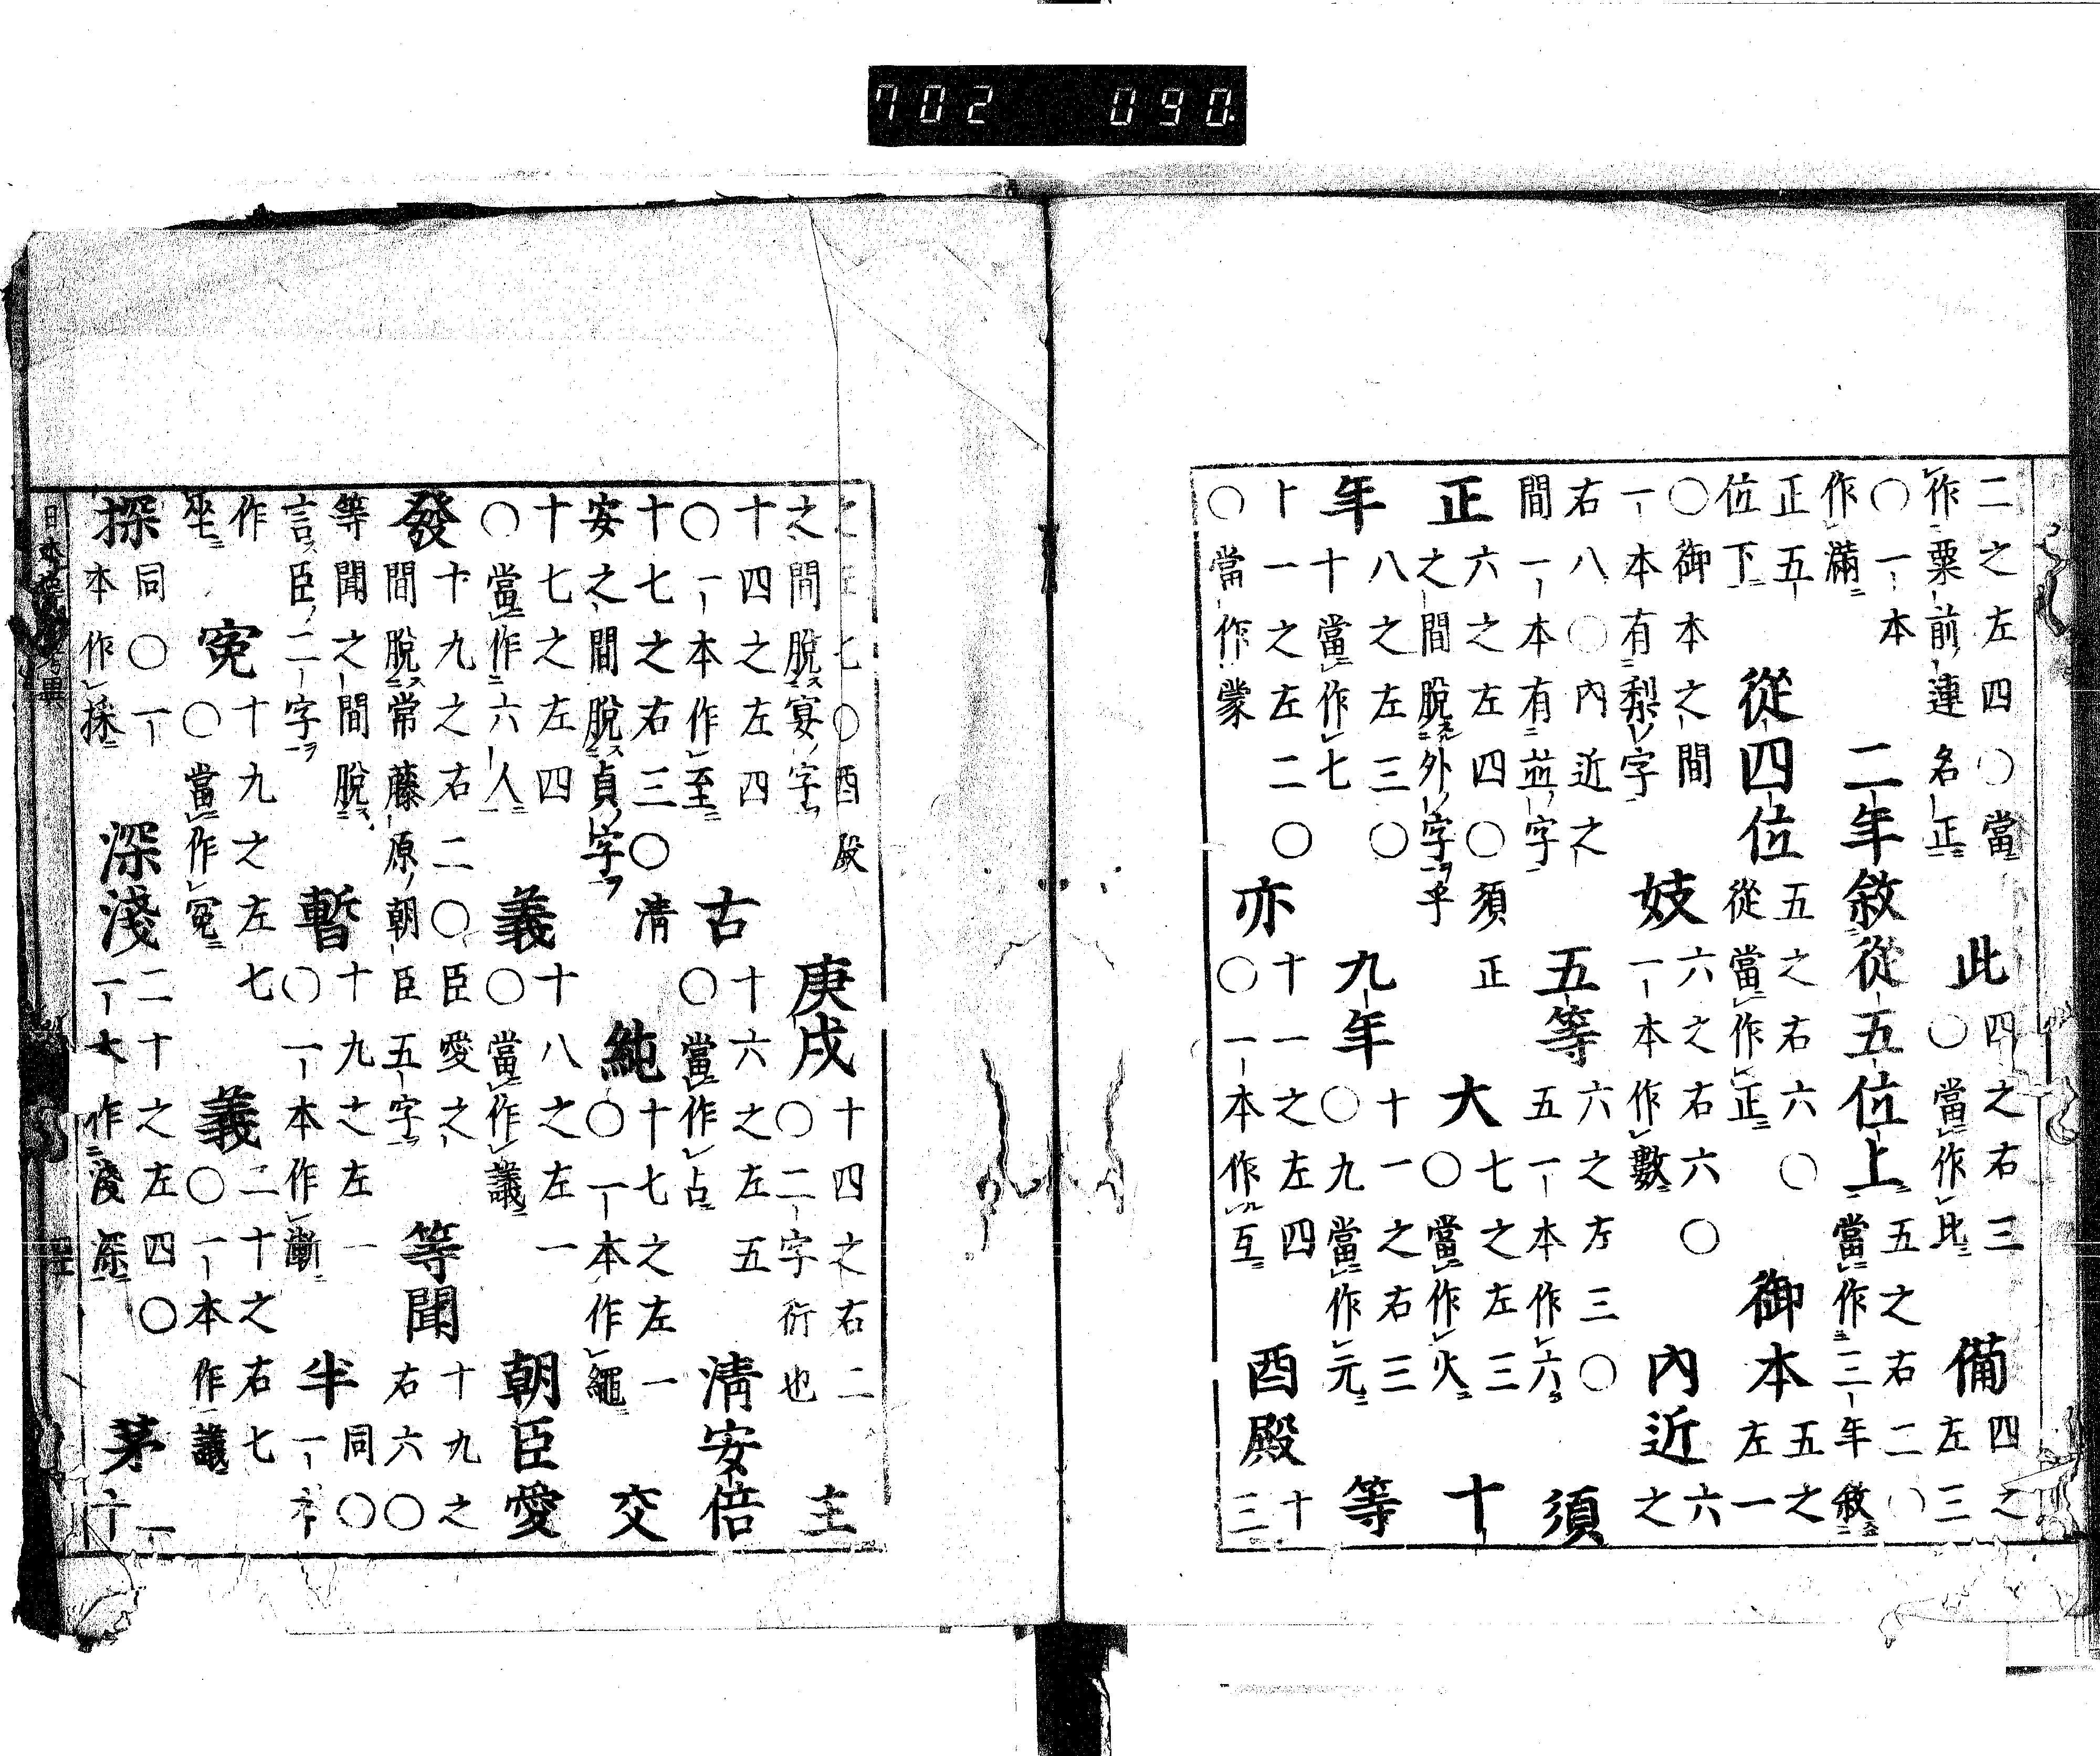 702 090
二之左四〇當
作粟前連名正
此
四之右三
〇當作比
備
四之
左三
〇一本
作滿
二年敘從五位上
五之右二〇
當作三年敘
正五
位下
從四位
五之右六〇
從當作正
御本
五之
左一
〇御本之間
一本有梨字
妓
六之右六〇
一本作數
內近
六
之
右八〇內近之
間一本有並字
五等
六之左三〇
五一本作六
須
正
六之左四〇須正
之間脫外字乎
大
七之左三
〇當作火
十
年
八之左三〇
十當作七
九年
十一之右三
〇九當作元
等
十一之左二〇
〇當作蒙
亦
十一之左四
〇一本作互
酉殿
十
三
七〇酉殿
之間脫宴字
庚戌
十四之右二
〇二字衍也
主
十四之左四
〇一本作至
古
十六之左五
〇當作占
清安倍
十七之右三〇清
安之間脫貞字
純
十七之左一
〇一本作繩
交
十七之左四
〇當作六人
義
十八之左一
〇當作議
朝臣愛
發
十九之右二〇臣愛之
間脫常藤原朝臣五字
等聞
十九之
右六〇
等聞之間脫
言臣二字
暫
十九之左一
〇一本作漸
半
同〇
一本
作
坐
寃
十九之左七
〇當作冤
義
二十之右七
〇一本作議
探
同〇一
本作採
深淺
二十之左四〇
一本作淺深
茅
日本